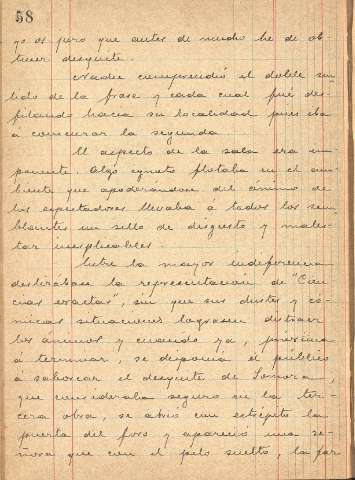 58
yo os juro que antes de mucho he de ob-
tener desquite.
Nadie comprendió el doble sen-
tido de la frase y cada cual fué des-
filando hacia su localidad pues iba
á comenzar la segunda
El aspecto de la sala era im-
ponente. Algo ignoto flotaba en el am-
biente que apoderandose del ánimo de
los espectadores llevaba á todos los sem-
blantes un sello de disgusto y males-
tar inexplicables.
Entre la mayor indiferencia
deslizabase la representación de "Cien-
cias exactas", sin que sus chistes y có-
micas situaciones lograsen distraer
los animos y cuando ya, proxima
á terminar, se disponia el público
á saborear el desquite de Sonora,
que consideraba seguro en la ter-
cera obra, se abrió con estrépito la
puerta del foro y apareció una se-
ñora que con el pelo suelto, la faz